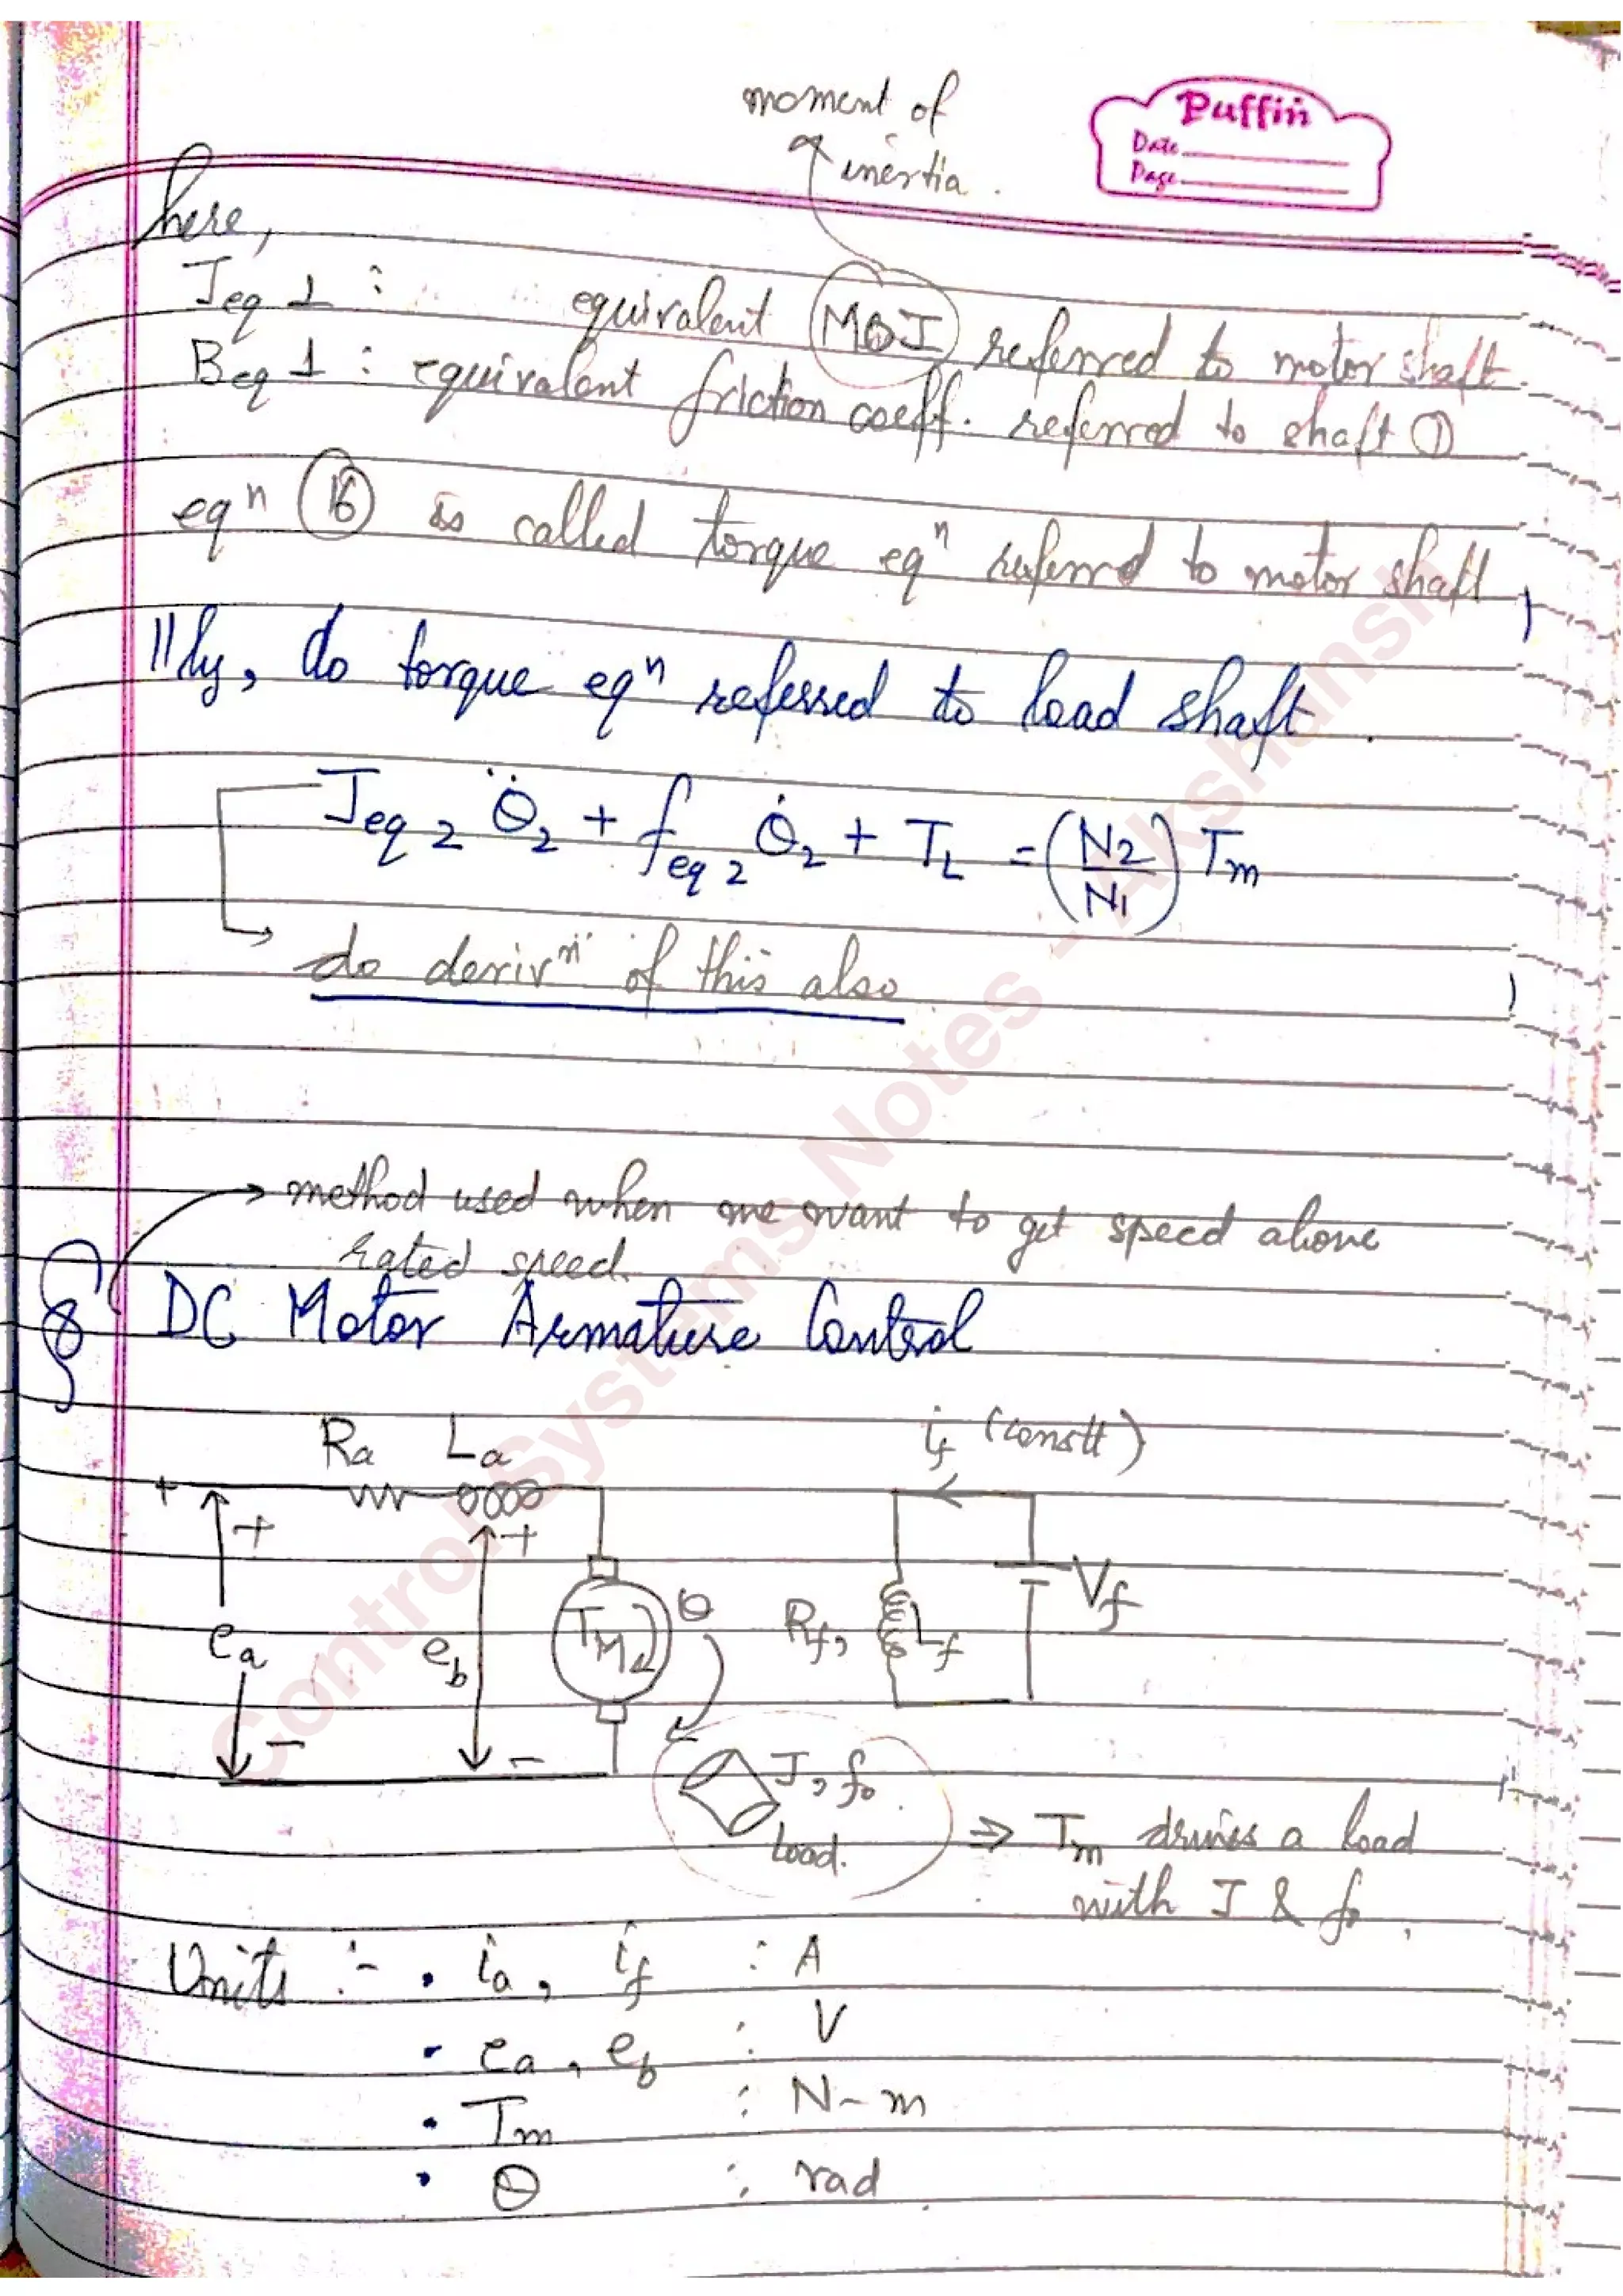 moment of
inertia .
Puffin
Date
Page
here,
Jeq 1 : equivalent MOI referred to motor shaft.
Beq 1 : equivalent friction coeff. referred to shaft ①
eqⁿ ⑯ is called torque eqⁿ referred to motor shaft
||ly, do torque eqⁿ referred to load shaft.
Jeq 2 θ̈₂ + feq 2 θ̇₂ + T_L = (N2/N1) Tm
do derivⁿ of this also
method used when we want to get speed above
rated speed.
§ DC Motor Armature Control
Ra La if (constt)
+ + +
ea eb TM θ Rf, Lf Vf
- -
J, f₀
Load.
⇒ Tm drives a load
with J & f₀.
Units :- • ia, if : A
• ea, eb : V
• Tm : N-m
• θ : rad
Control Systems Notes - Akshansh